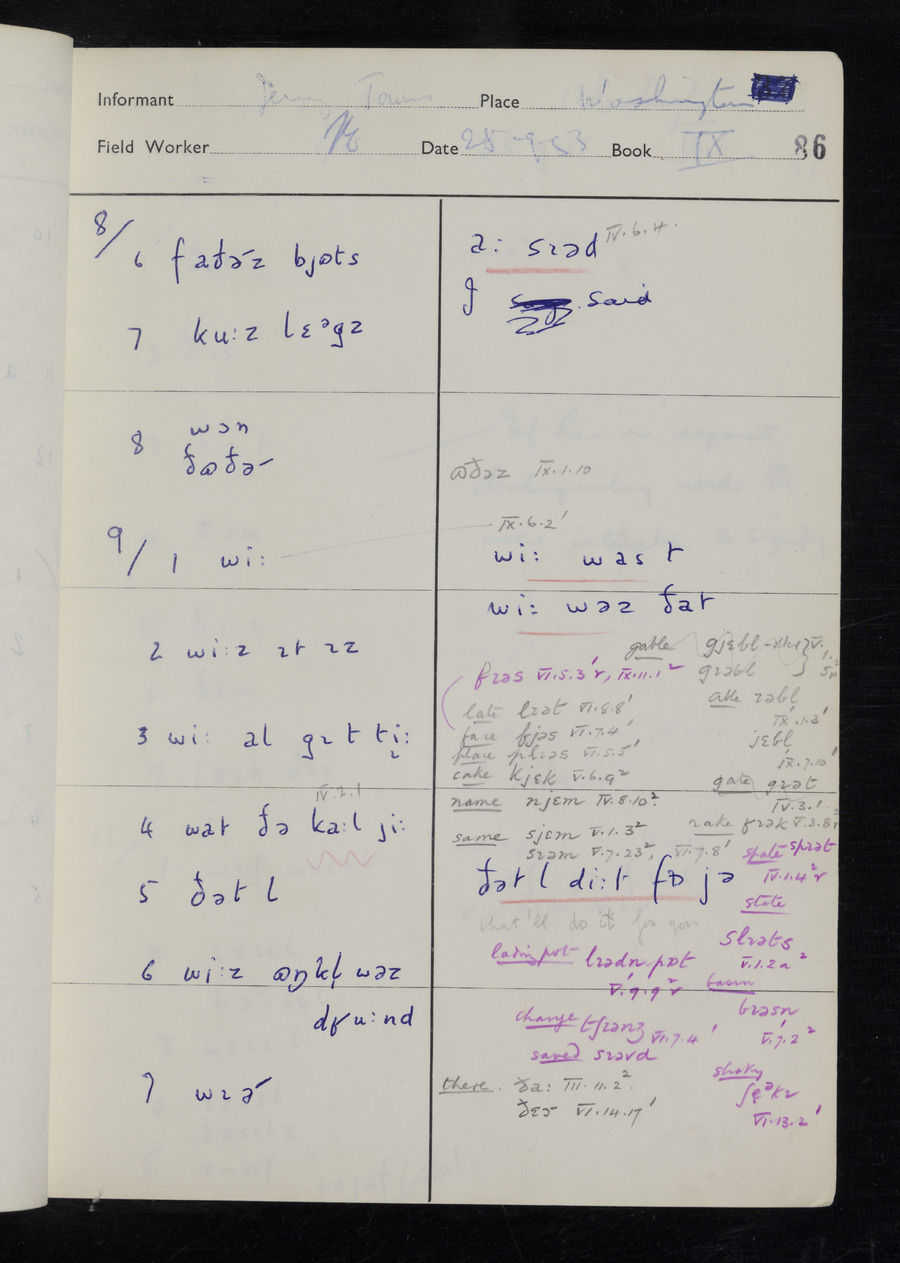 Informant Place Washington
Field Worker Date 28-9-53 Book IX 86
8/
6 faðə˞z bjɒts
7 ku:z lɛᵊgz
8 wɔn
ðɒðə˞
9/ 1 wi:
2 wi:z ɪt ɪz
3 wi: al gɪt ti:
IV.2.1
4 wat ðə ka:l ji:
5 ðət l
6 wi:z ɒŋkl wəz
dʒu:nd
7 wɪə˞
a: sɪəd IV.6.4.
I said
ɒðəz IX.1.10
IX.6.2'
wi: wast
wi: wəz ðat
gable gjɛbl
grəbl
frəs VI.5.3'r, IX.11.1²
able ɪəbl
late lɪət VI.8.8'
IX.1.3'
face fjɛs VI.7.4'
jɛbl
place plɪəs VI.5.5'
IX.7.10'
cake kjɛk V.6.9²
gate gɪət
name njɛm IV.8.10²
IV.3.1
same sjɛm V.1.3²
rake frək V.3.8
sɪəm V.7.23², VI.7.8'
spate spɪət
IV.1.4²r
ðət l di:t fɒ jə
state
that'll do it for you
slɪəts
V.1.2a²
lading pot lɪədn pɒt
V.9.9²r
basin
bɪəsn
V.7.2²
change tʃɪənʒ VI.7.4'
saved sɪəvd
shaky
ʃɛᵊkɪ
VI.13.2'
there. ða: III.11.2².
ðɛə VI.14.17'